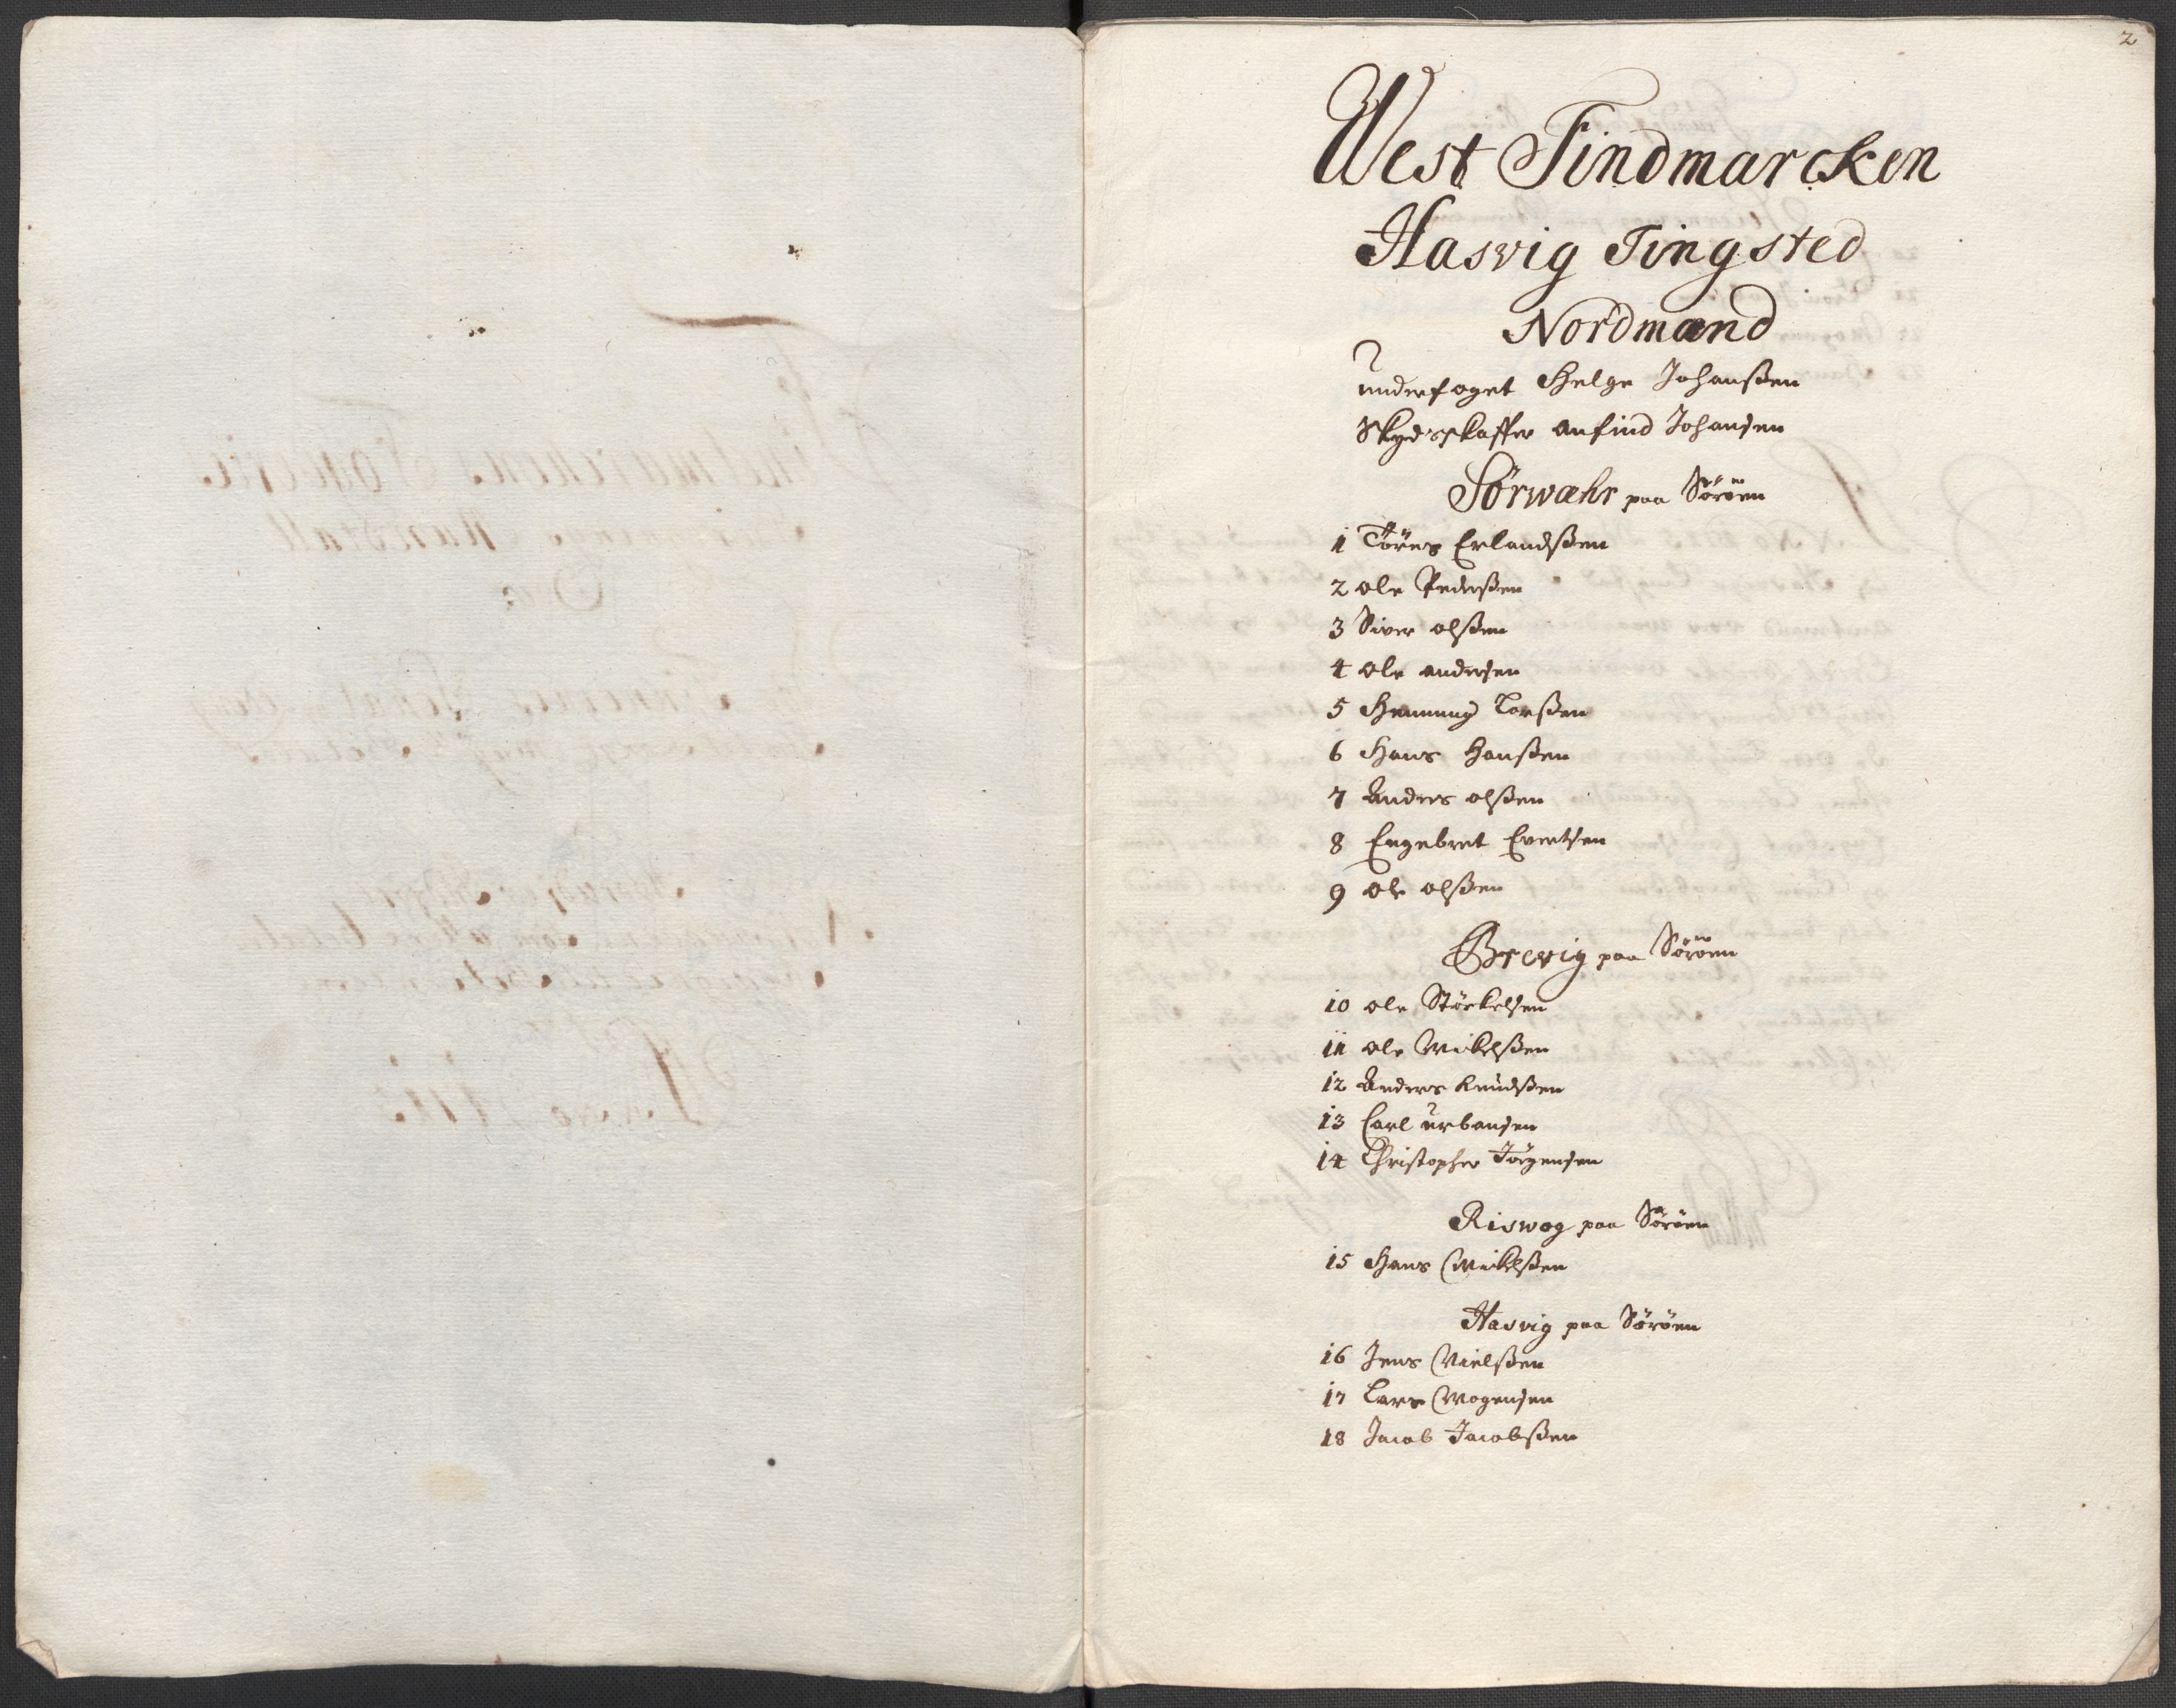 2
West Findmarcken
Hasvig Tingsted
Nordmænd
underfoget Helge Johanßen
Skydsskaffer Anfind Johansen
Sørwæhr paa Sørøen
1 Töres Erlandßen
2 Ole Pederßen
3 Siver olßen
4 Ole andersen
5 Henning Larßen
6 Hans Hanßen
7 Anders olßen
8 Engebret Evertsen
9 Ole olßen
Brevig paa Sørøen
10 Ole Störkelsen
11 Ole Mickelßen
12 Anders Knudßen
13 Carl urbansen
14 Christopher Jörgensen
Riswog paa Söröen
15 Hans Mickelßen
Hasvig paa Söröen
16 Jens Nielßen
17 Lars Mogensen
18 Jacob Jacobßen